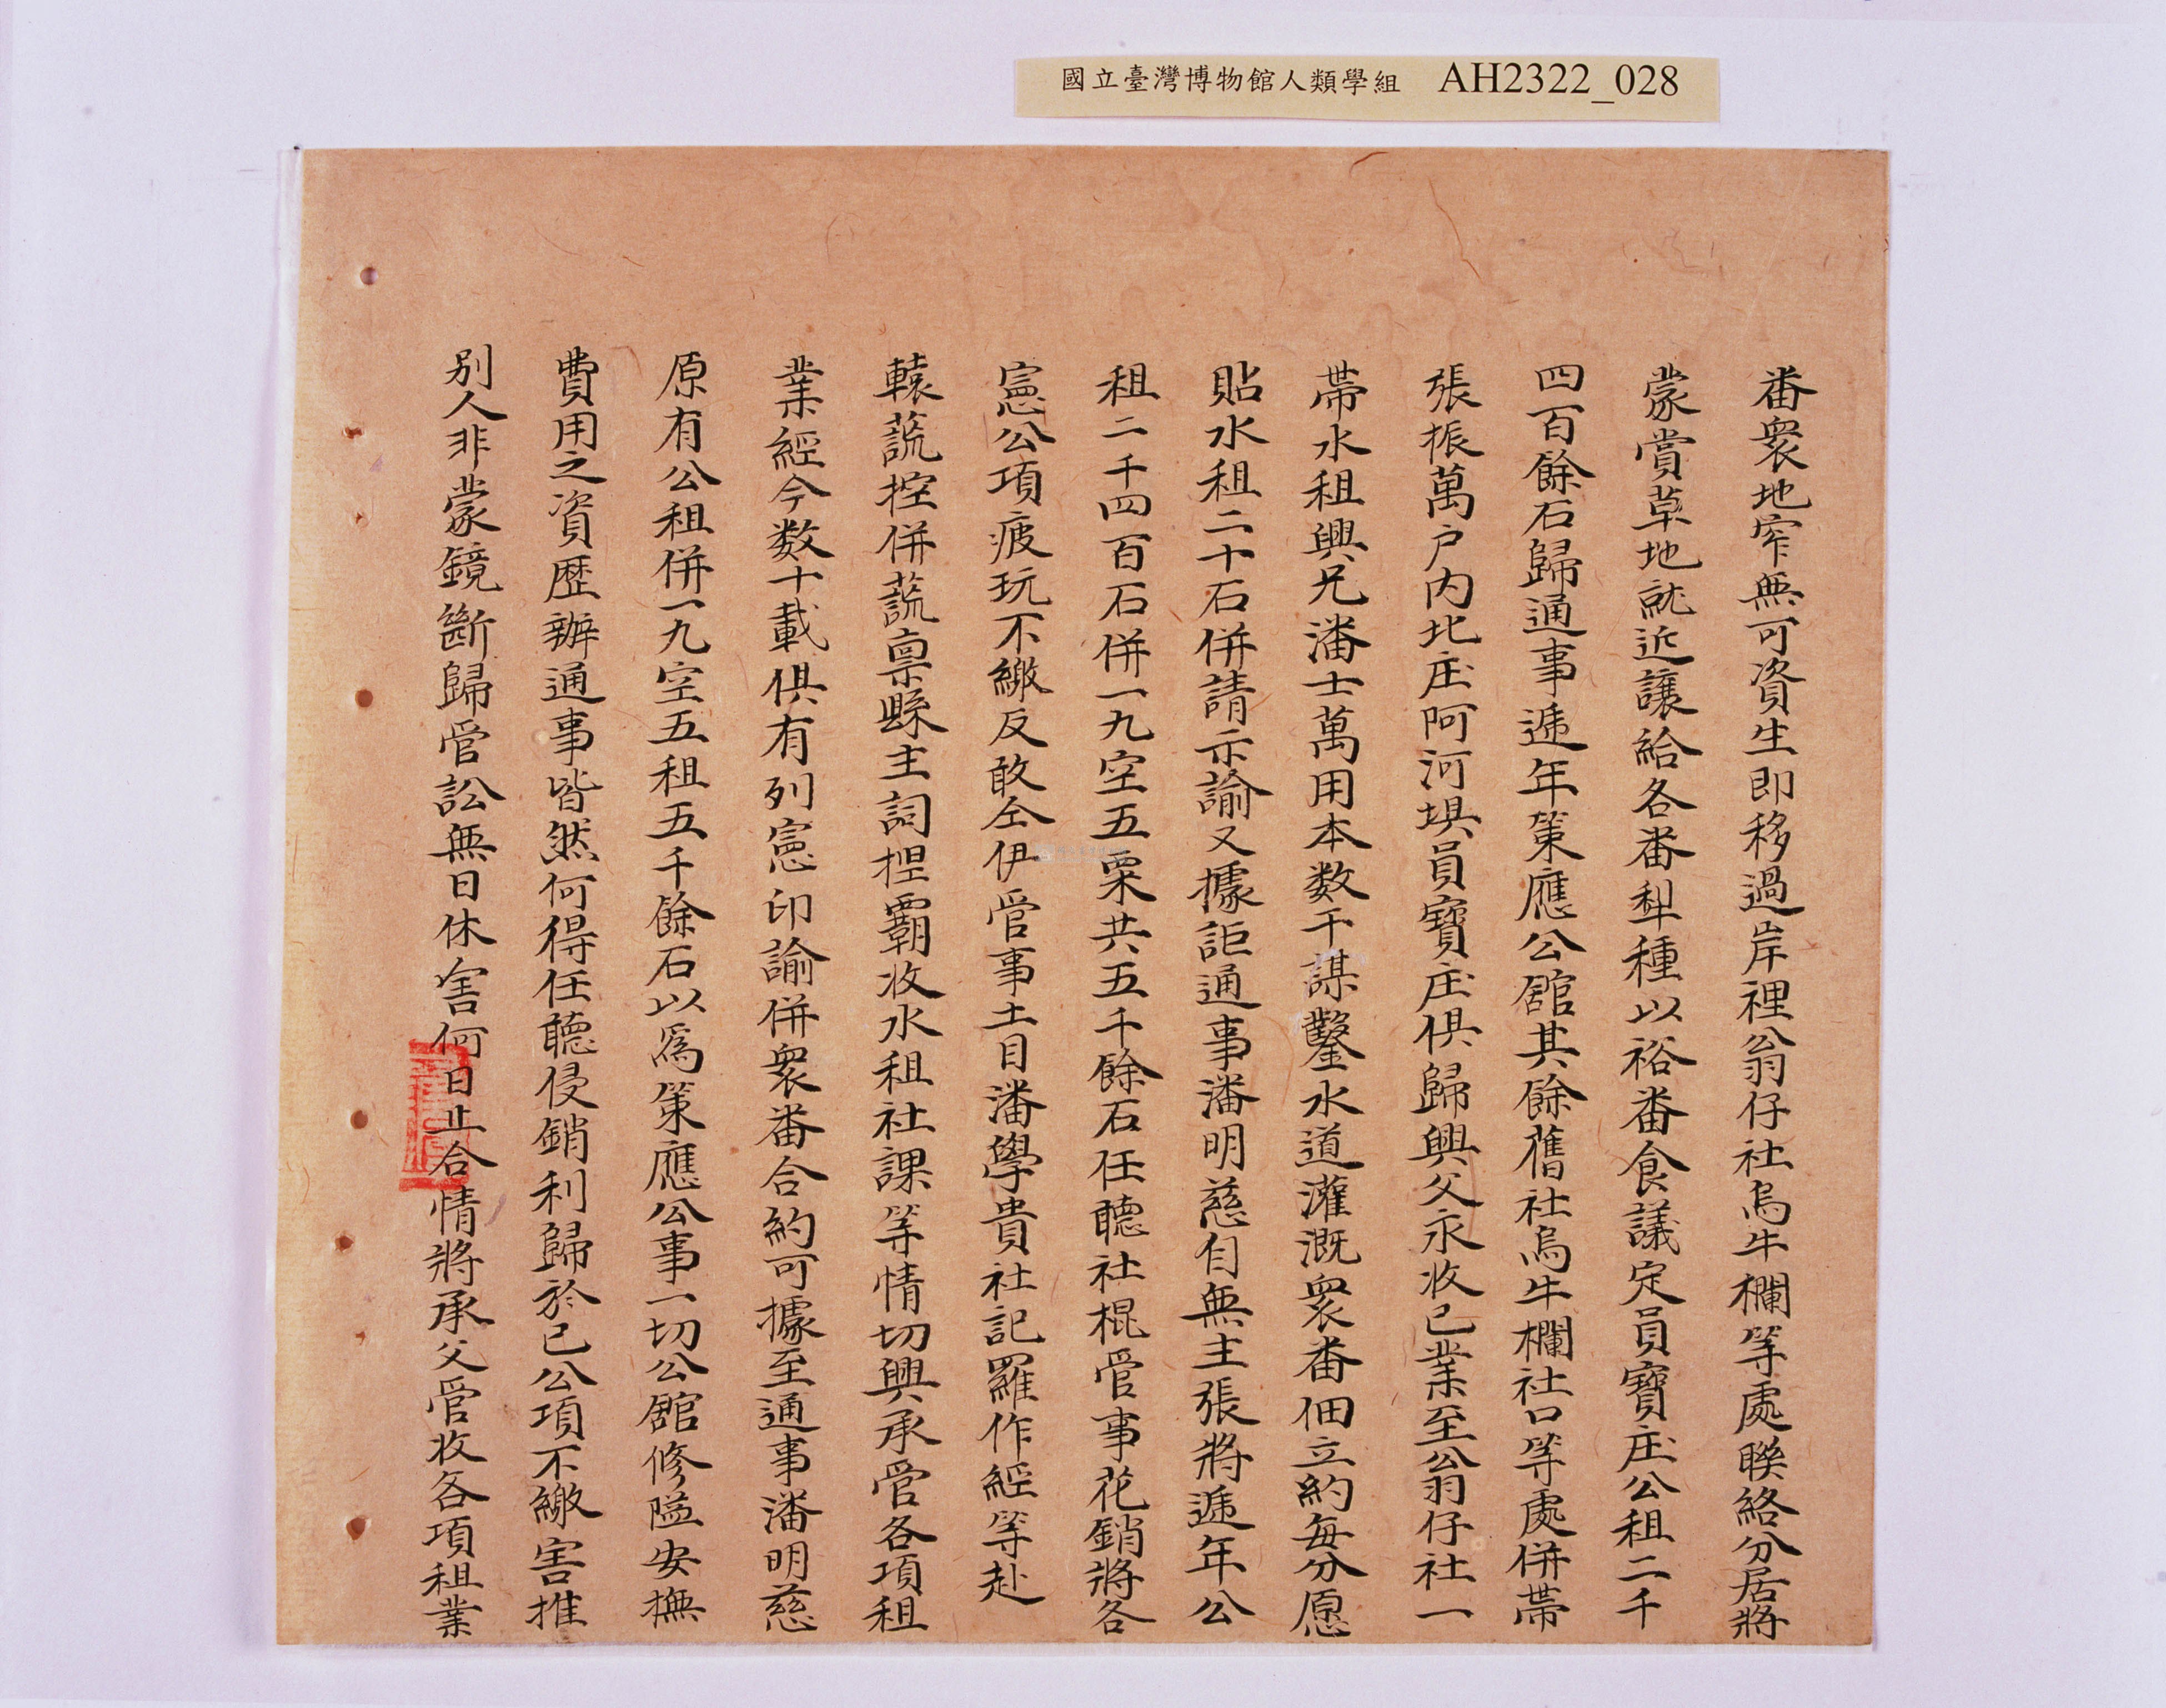 國立臺灣博物館人類學組 AH2322_028
番衆地窄無可資生即移過岸裡翁仔社烏牛欄等處聯絡分居將
蒙賞草地就近讓給各番犁種以裕番食議定員寶庄公租二千
四百餘石歸通事遞年策應公舘其餘舊社烏牛欄社口等處併帶
張振萬户内北庄阿河埧員寶庄俱歸興父永收已業至翁仔社一
帶水租興兄潘士萬用本数千謀鑿水道灌溉衆番佃立約每分愿
貼水租二十石併請示諭又據詎通事潘明慈自無主張將遞年公
租二千四百石併一九空五粟共五千餘石任聽社棍管事花銷將各
憲公項疲玩不繳反敢仝伊管事土目潘學貴社記羅作經等赴
轅蔬控併蔬禀縣主詞捏霸收水租社課等情切興承管各項租
業經今数十載俱有列憲印諭併衆番合約可據至通事潘明慈
原有公租併一九空五租五千餘石以爲策應公事一切公舘修隘安撫
費用之資歷辦通事皆然何得任聽侵銷利歸於已公項不繳害推
别人非蒙鏡斷歸管訟無日休害何日止合情將承父管收各項租業